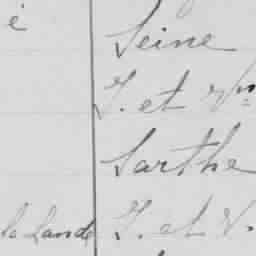 é Seine
I. et Vne
Sarthe
la Lande I. et V.